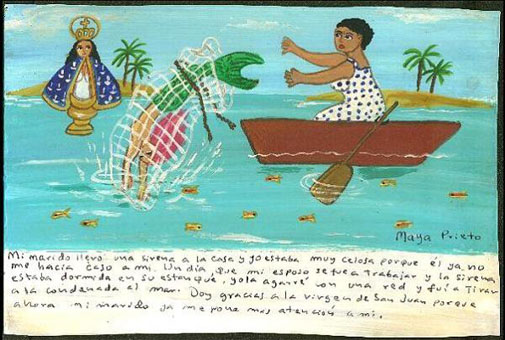 Maya Prieto
Mi marido llevó una sirena a la casa y yo estaba muy celosa porque él ya no
me hacía caso a mi. Un día que mi esposo se fue a trabajar y la sirena
estaba dormida en su estanque, yo la agarré con una red y fui a tirar
a la condenada al mar. Doy gracias a la virgen de San Juan porque
ahora mi marido ya me pone mas atención a mi.